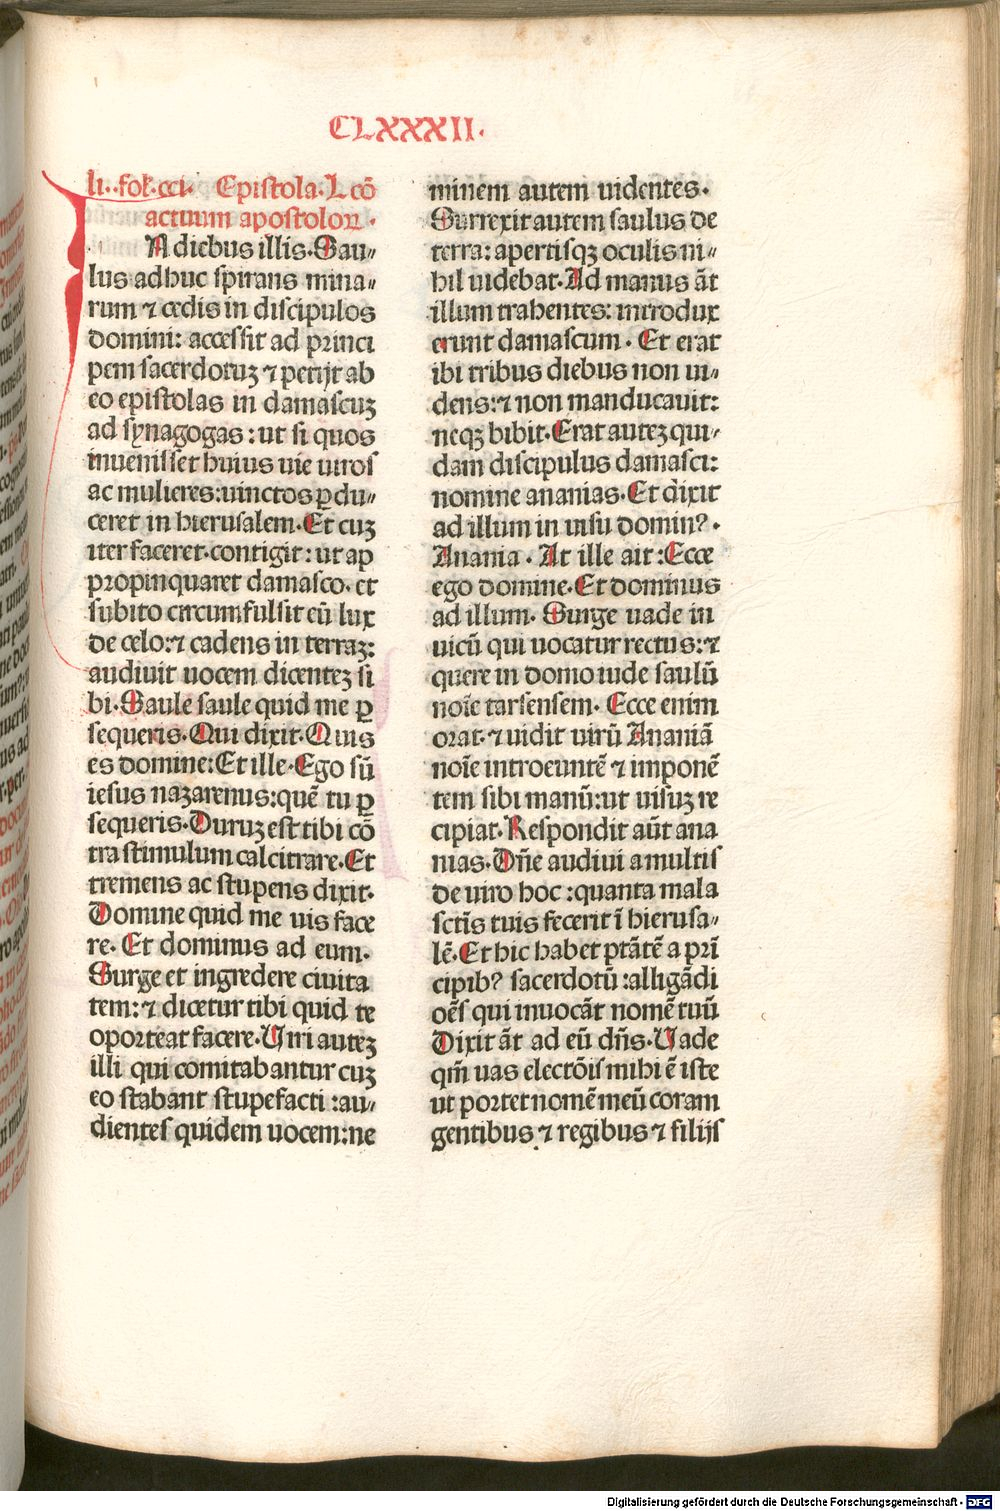 CLXXXII.
li. fol. cci. Epistola. Lcõ
actuum apostoloꝝ.
N diebus illis. Sau⸗
lus adhuc spirans mina⸗
rum ⁊ cedis in discipulos
domini: accessit ad princi
pem sacerdotuꝫ ⁊ petijt ab
eo epistolas in damascuꝫ
ad synagogas: ut si quos
inuenisset huius uie uiros
ac mulieres: uinctos ꝑdu⸗
ceret in hierusalem. Et cuꝫ
iter faceret. contigit: ut ap
propinquaret damasco. et
subito circumfulsit eũ lux
de celo: ⁊ cadens in terraꝫ:
audiuit uocem dicenteꝫ si
bi. Saule saule quid me ꝑ
sequeris. Qui dixit. Quis
es domine: Et ille. Ego sũ
iesus nazarenus: quẽ tu ꝑ
sequeris. Duruꝫ est tibi cõ
tra stimulum calcitrare. Et
tremens ac stupens dixit.
Domine quid me uis face
re. Et dominus ad eum.
Surge et ingredere ciuita
tem: ⁊ dicetur tibi quid te
oporteat facere. Uiri auteꝫ
illi qui comitabantur cuꝫ
eo stabant stupefacti: au⸗
dientes quidem uocem: ne
minem autem uidentes.
Surrexit autem saulus de
terra: apertisqꝫ oculis ni⸗
hil uidebat. Ad manus ãt
illum trahentes: introdux
erunt damascum. Et erat
ibi tribus diebus non ui⸗
dens: ⁊ non manducauit:
neqꝫ bibit. Erat auteꝫ qui⸗
dam discipulus damasci:
nomine ananias. Et dixit
ad illum in uisu domin?.
Anania. At ille ait: Ecce
ego domine. Et dominus
ad illum. Surge uade in
uicũ qui uocatur rectus: ⁊
quere in domo iude saulũ
noĩe tarsensem. Ecce enim
orat. ⁊ uidit uirũ Ananiã
noĩe introeuntẽ ⁊ imponẽ
tem sibi manũ: ut uisuꝫ re
cipiat. Respondit aũt ana
nias. Dñe audiui a multis
de uiro hoc: quanta mala
sctĩs tuis fecerit ĩ hierusa⸗
lẽ. Et hic habet ptãtẽ a prĩ
cipib? sacerdotũ: alligãdi
oẽs qui inuocãt nomẽ tuũ
Dixit ãt ad eũ dñs. Uade
qm̃ uas electõis mihi ẽ iste
ut portet nomẽ meũ coram
gentibus ⁊ regibus ⁊ filijs
Digitalisierung gefördert durch die Deutsche Forschungsgemeinschaft - DFG